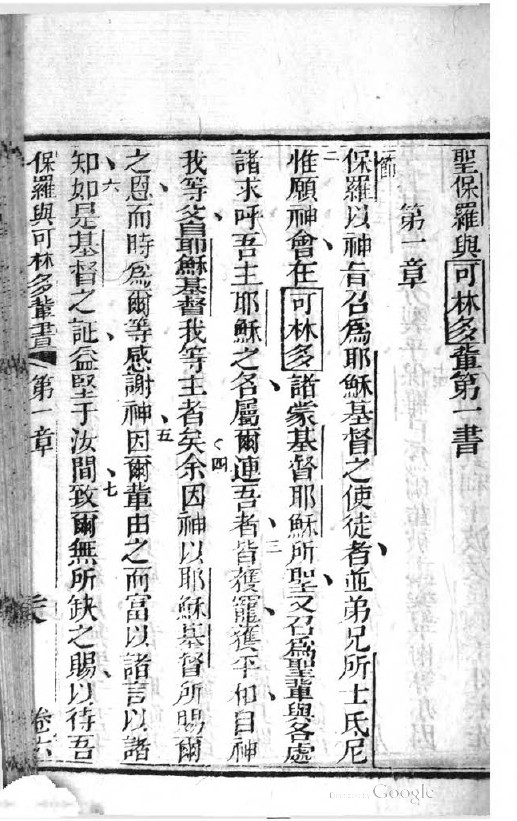 聖保羅與可林多輩第一書
第一章
節
保羅以神旨召爲耶穌基督之使徒者並弟兄所士氏尼
二
惟願神會在可林多諸蒙基督耶穌所聖又召爲聖輩與各處
三
諸求呼吾主耶穌之名屬爾連吾者皆獲寵獲平和自神
四
我等父自耶穌基督我等主者矣余因神以耶穌基督所賜爾
五
之恩而時爲爾等感謝神因爾輩由之而富以諸言以諸
六 七
知如是基督之証益堅于汝間致爾無所缺之賜以待吾
保羅與可林多輩書 第一章 卷六
Digitized by Google